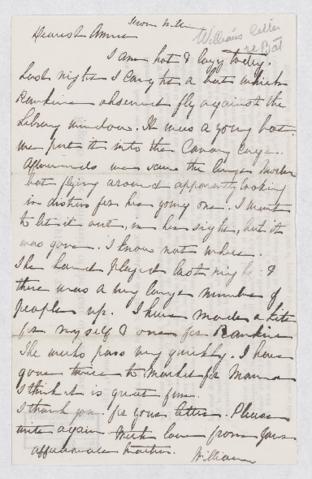 William's letter
re Bat
Dearest Anna
I am hot & lazy today.
Last night I caught a bat which
Rankine observed fly against the
Library windows. It was a young bat.
we put it into the Canary cage.
Afterwards we saw the large Mother
bat flying around apparently looking
in distress for her young one. I went
to let it out, in her sight, but it
was gone. I know not where.
The band played last night &
there was a very large number of
people up. I have made a kite
for myself & one for Rankine
The weeks pass very quickly. I have
gone twice to Market for Mama
I think it is great fun.
I thank you for your letter. Please
write again. With love from your
affectionate brother.
William